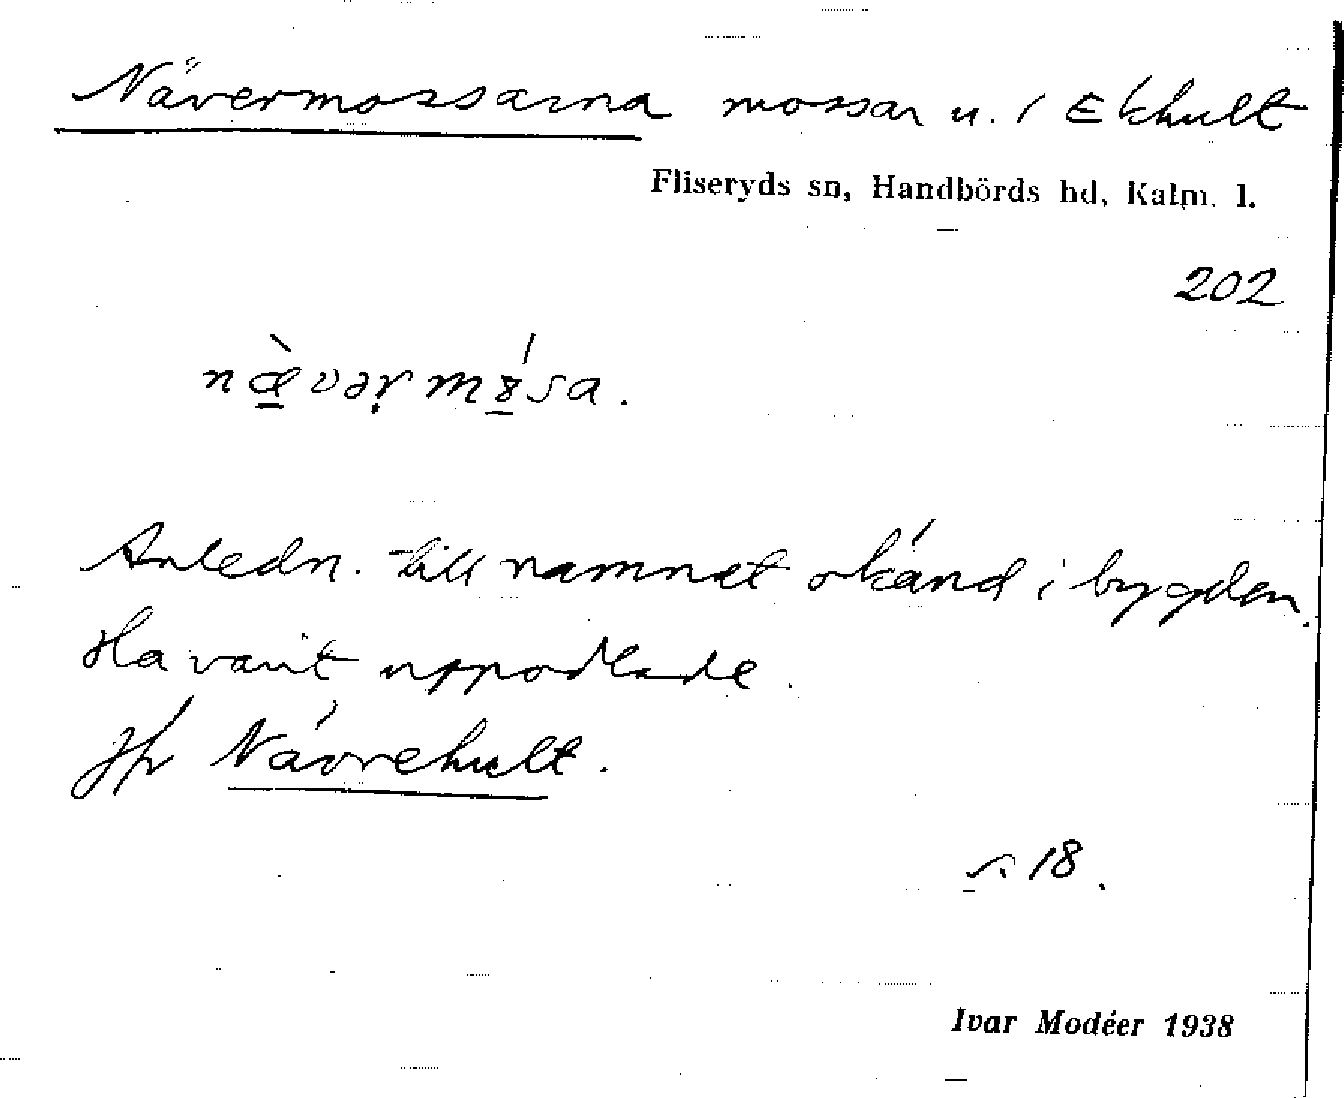 Nävermossarna mossar u. / Ekhult
Fliseryds sn, Handbörds hd, Kalm. l.
202
næ̀vər̥mȣ́sa.
Anledn. till namnet okänd i bygden.
Ha varit uppodlade.
Jfr Nävrehult.
s. 18.
Ivar Modéer 1938